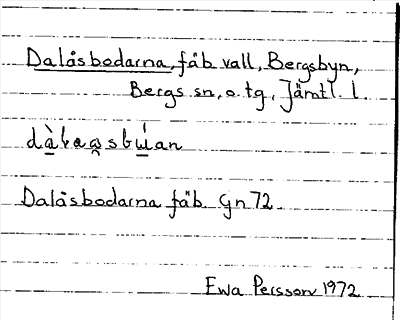 Dalåsbodarna, fäb. vall, Bergsbyn,
Bergs sn, o. tg, Jämtl. l.
Dalåsbodarna fäb. Gn 72
Ewa Persson 1972